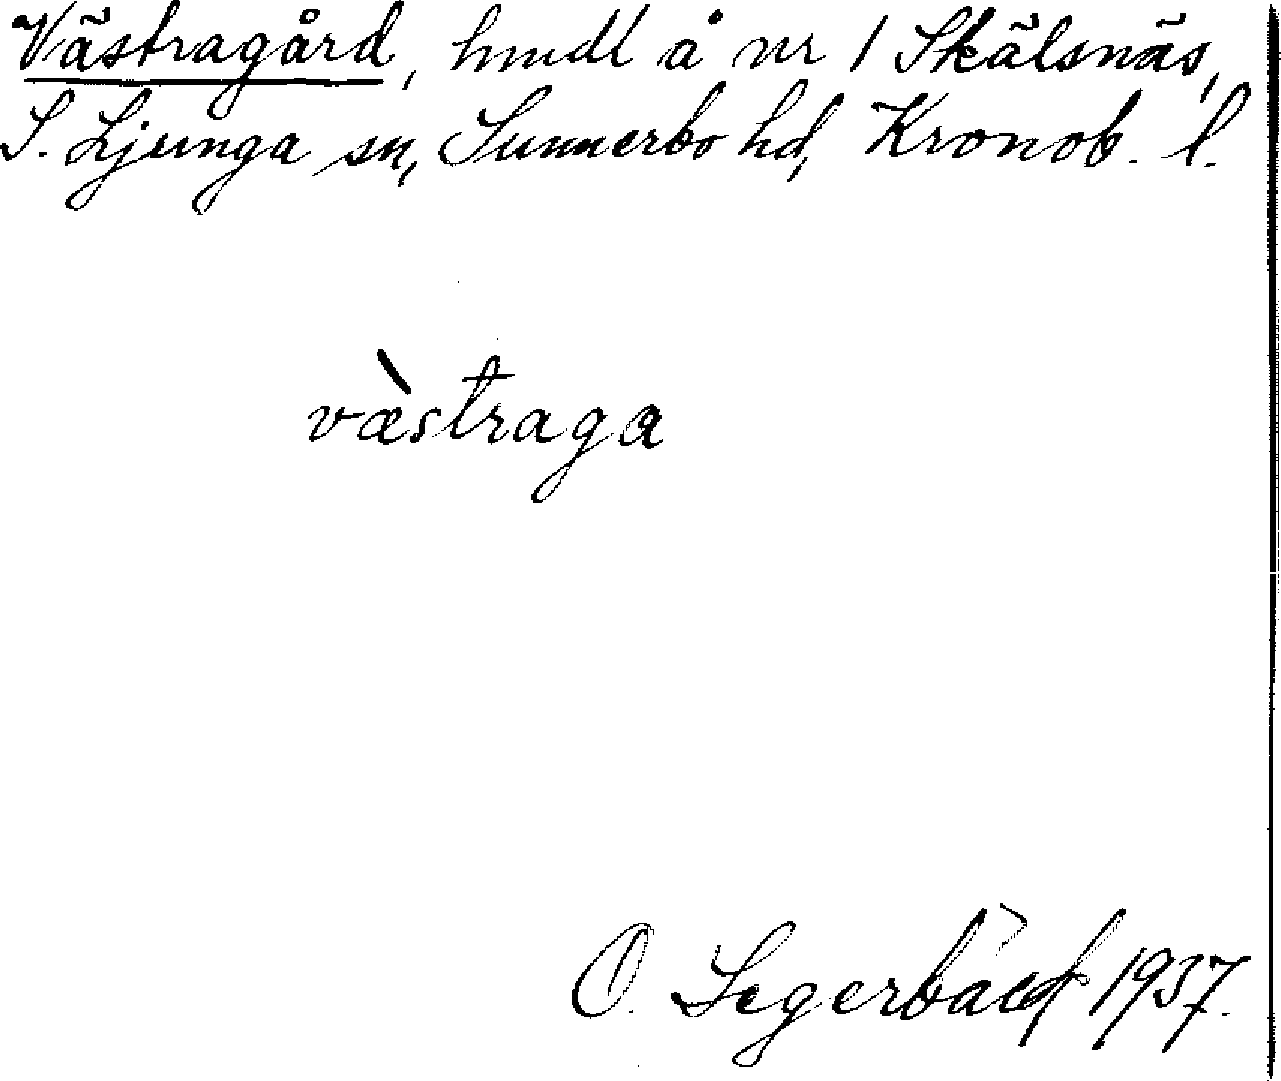 Västragård, hmdl å nr 1 Skälsnäs,
S. Ljunga sn, Sunnerbo hd, Kronob. l.
væ̀straga
O. Segerbäck 1937.